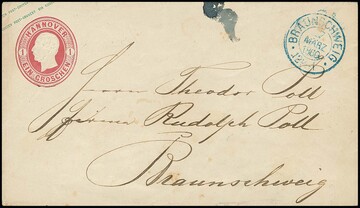 HANNOVER
1 1
EIN GROSCHEN
BRAUNSCHWEIG
MÄRZ
Herrn Theodor Poll
firma Rudolph Poll
Braunschweig